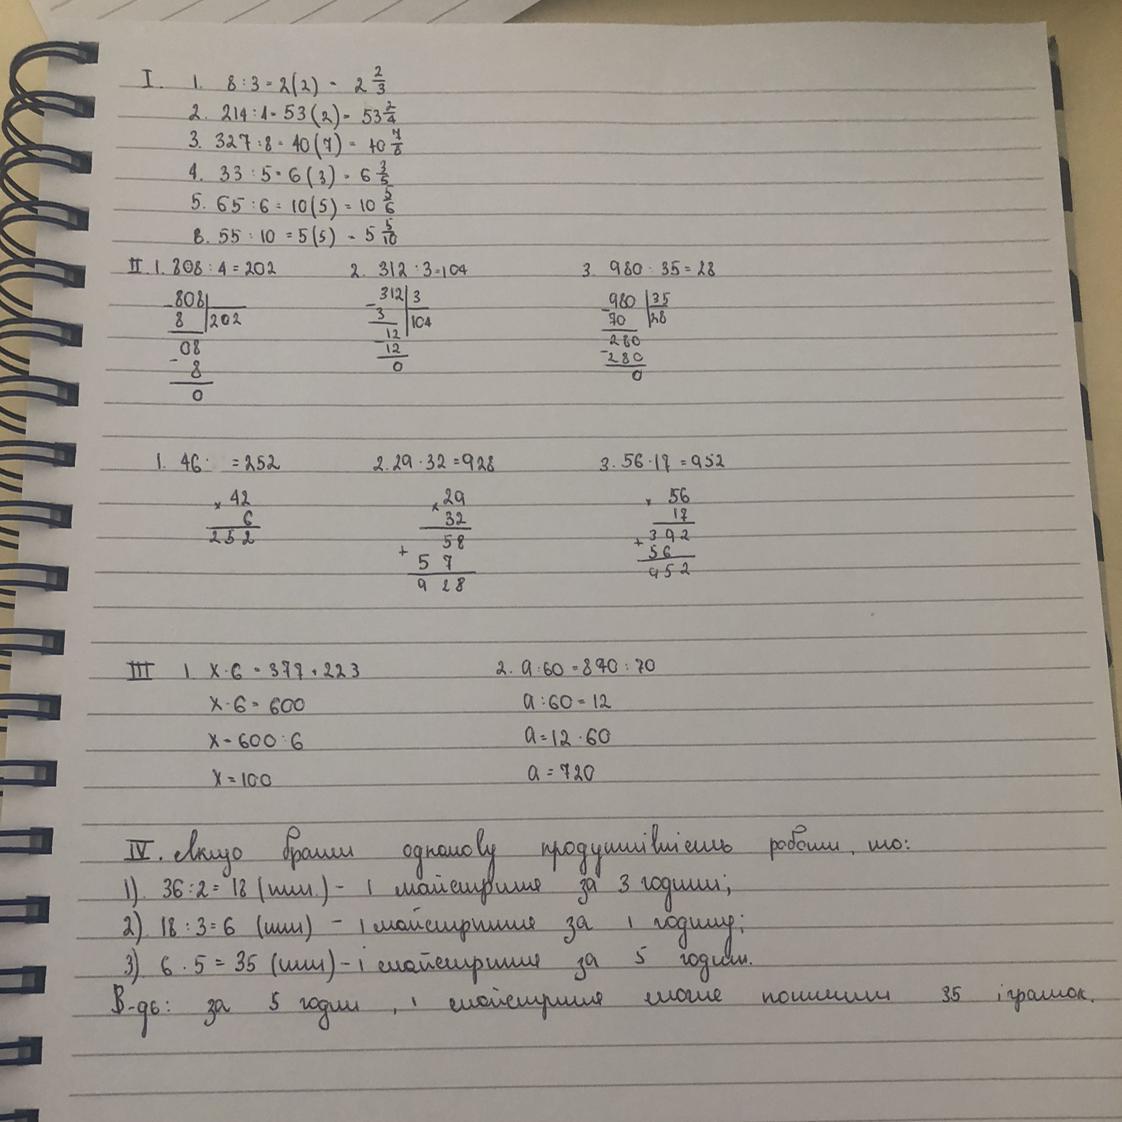 I. 1. 8 : 3 = 2(2) = 2 2/3
2. 214 : 4 = 53(2) = 53 2/4
3. 327 : 8 = 40(7) = 40 7/8
4. 33 : 5 = 6(3) = 6 3/5
5. 65 : 6 = 10(5) = 10 5/6
6. 55 : 10 = 5(5) = 5 5/10
II. 1. 808 : 4 = 202 2. 312 : 3 = 104 3. 980 : 35 = 28
-808 -312 3 -980 35
8 202 3 104 70 28
08 12 280
- 8 -12 -280
0 0 0
1. 46 · = 252 2. 29 · 32 = 928 3. 56 · 17 = 952
× 42 × 29 × 56
6 32 17
252 58 + 392
+ 57 56
928 952
III 1. x · 6 = 377 + 223 2. a : 60 = 840 : 70
x · 6 = 600 a : 60 = 12
x = 600 : 6 a = 12 · 60
x = 100 a = 720
IV. Якщо брати однакову продуктивність роботи, то:
1). 36 : 2 = 18 (шт.) - 1 майстриня за 3 години;
2) 18 : 3 = 6 (шт) - 1 майстриня за 1 годину;
3) 6 · 5 = 35 (шт) - 1 майстриня за 5 годин.
В-дь: за 5 годин, 1 майстриня може пошити 35 іграшок.